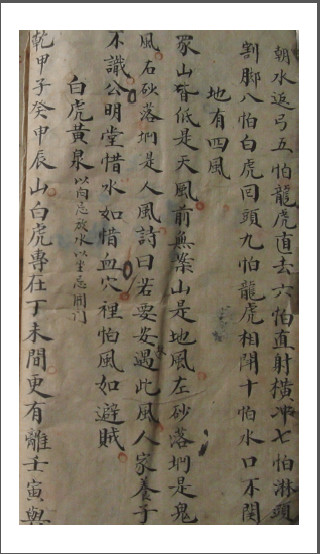 朝水返弓五怕龍虎直去六怕直射橫冲七怕淋頭
割脚八怕白虎囘頭九怕龍虎相鬪十怕水口不関
地有四風
衆山皆低是天風前無案山是地風左砂落坍是鬼
風右砂落坍是人風詩曰若要安遇此風人家養子
不識公明堂惜水如惜血穴裡怕風如避賊
白虎黃泉以向忌放水以坐忌開门
乾甲子癸申辰山白虎專在丁未間更有離壬寅與